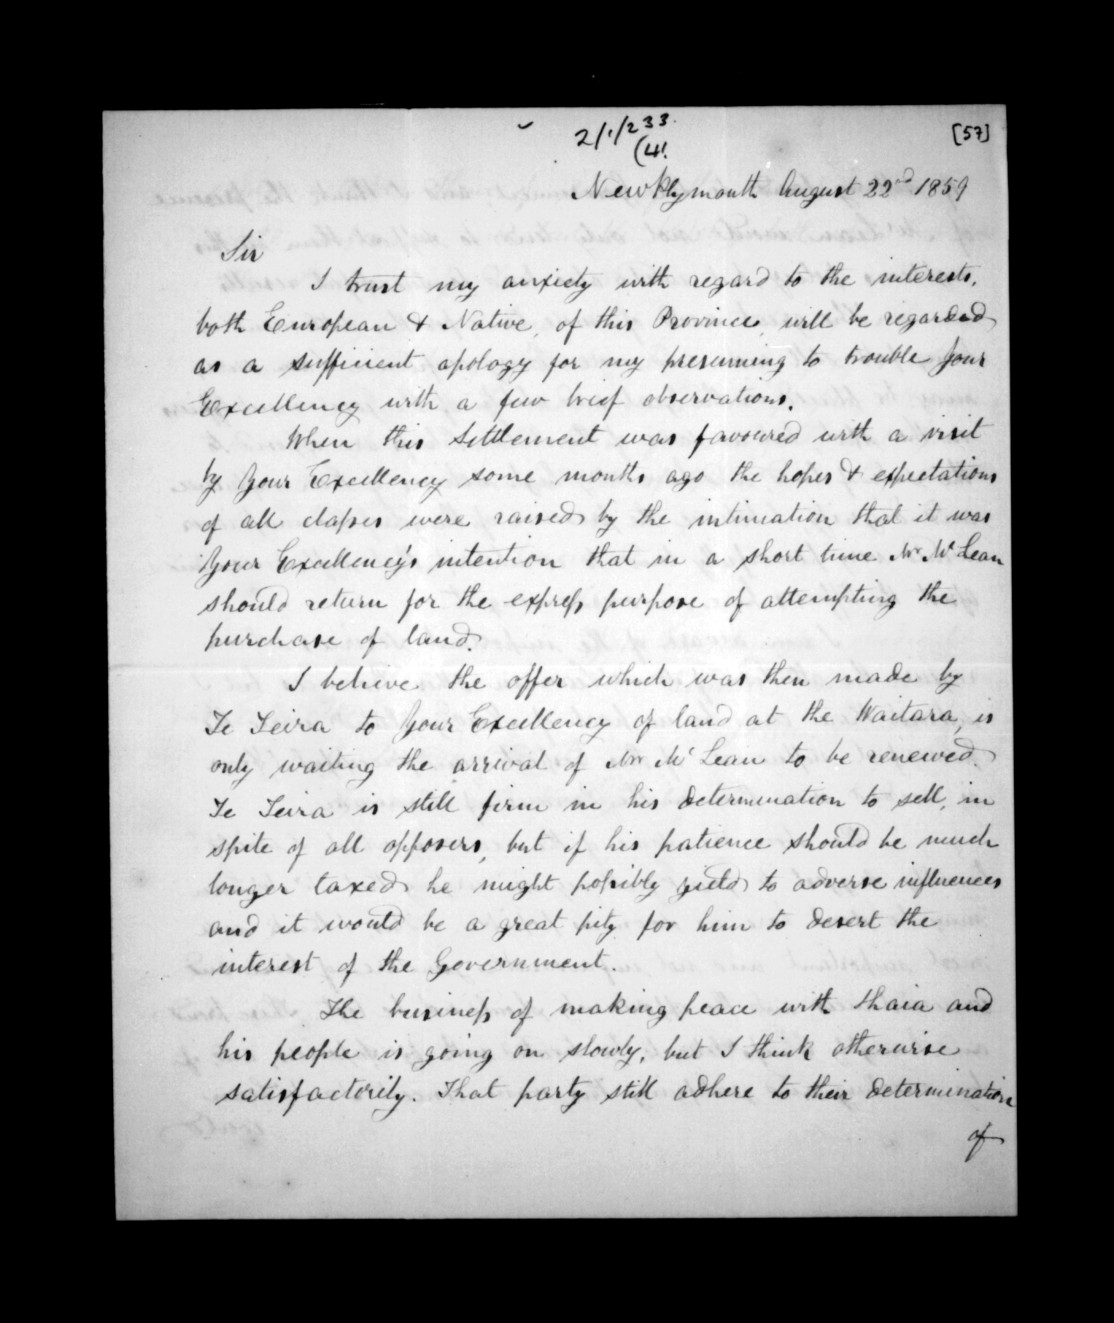 2/1/233.
(4!
[57]
New Plymouth August 22nd 1859
Sir
I trust my anxiety with regard to the interests,
both European & Native, of this Province, will be regarded
as a sufficient apology for my presuming to trouble Your
Excellency with a few brief observations.
When this Settlement was favoured with a visit
by Your Excellency some months ago the hopes & expectations
of all classes were raised by the intimation that it was
Your Excellency's intention that in a short time Mr McLean
should return for the express purpose of attempting the
purchase of land.
I believe the offer which was then made by
Te Teira to Your Excellency of land at the Waitara, is
only waiting the arrival of Mr McLean to be renewed.
Te Teira is still firm in his determination to sell, in
spite of all opposers, but if his patience should be much
longer taxed he might possibly yield to adverse influences
and it would be a great pity for him to desert the
interest of the Government.
The business of making peace with Ihaia and
his people is going on slowly, but I think otherwise
satisfactorily. That party still adhere to their determination
of